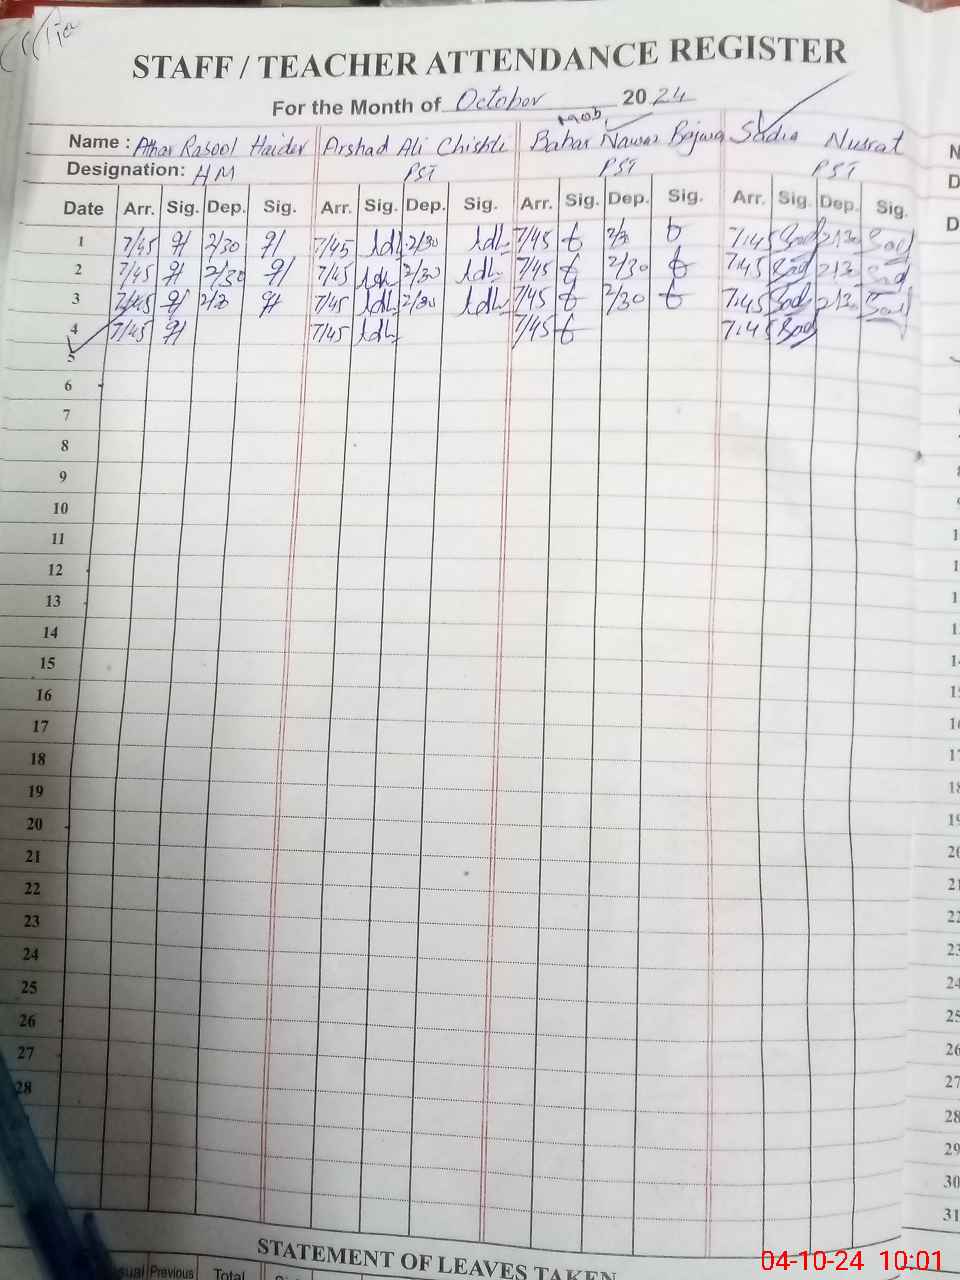 STAFF / TEACHER ATTENDANCE REGISTER
For the Month of October 2024
Name : Athar Rasool Haider Arshad Ali Chishti Babar Nawaz Bajwa Sadia Nusrat
Designation: HM PST PST PST
Date Arr. Sig. Dep. Sig. Arr. Sig. Dep. Sig. Arr. Sig. Dep. Sig. Arr. Sig. Dep. Sig.
1 7/45 2/30 7/45 2/30 7/45 2/3 7:45 2:30
2 7/45 2/30 7/45 2/30 7/45 2/30 7:45 2:3
3 7/45 2/3 7/45 2/30 7/45 2/30 7:45 2:3
4 7/45 7/45 7/45 7:45
5
6
7
8
9
10
11
12
13
14
15
16
17
18
19
20
21
22
23
24
25
26
27
28
28
29
30
31
STATEMENT OF LEAVES TAKEN
Previous Total
04-10-24 10:01